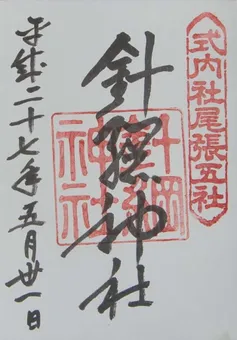 式内社尾張五社
針綱神社
針綱神社
平成二十七年五月廿一日